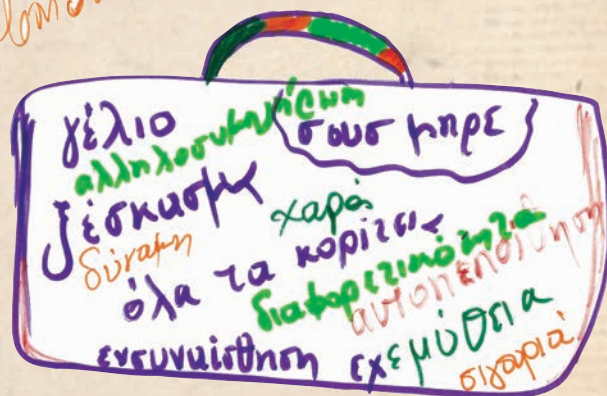 γέλιο
αλληλοσυμπλήρωση
σους μπρε
ξέσκασμα
χαρά
δύναμη
όλα τα κορίτσια
διαφορετικότητα
αυτοπεποίθηση
ενσυναίσθηση
εχεμύθεια
σιγουριά